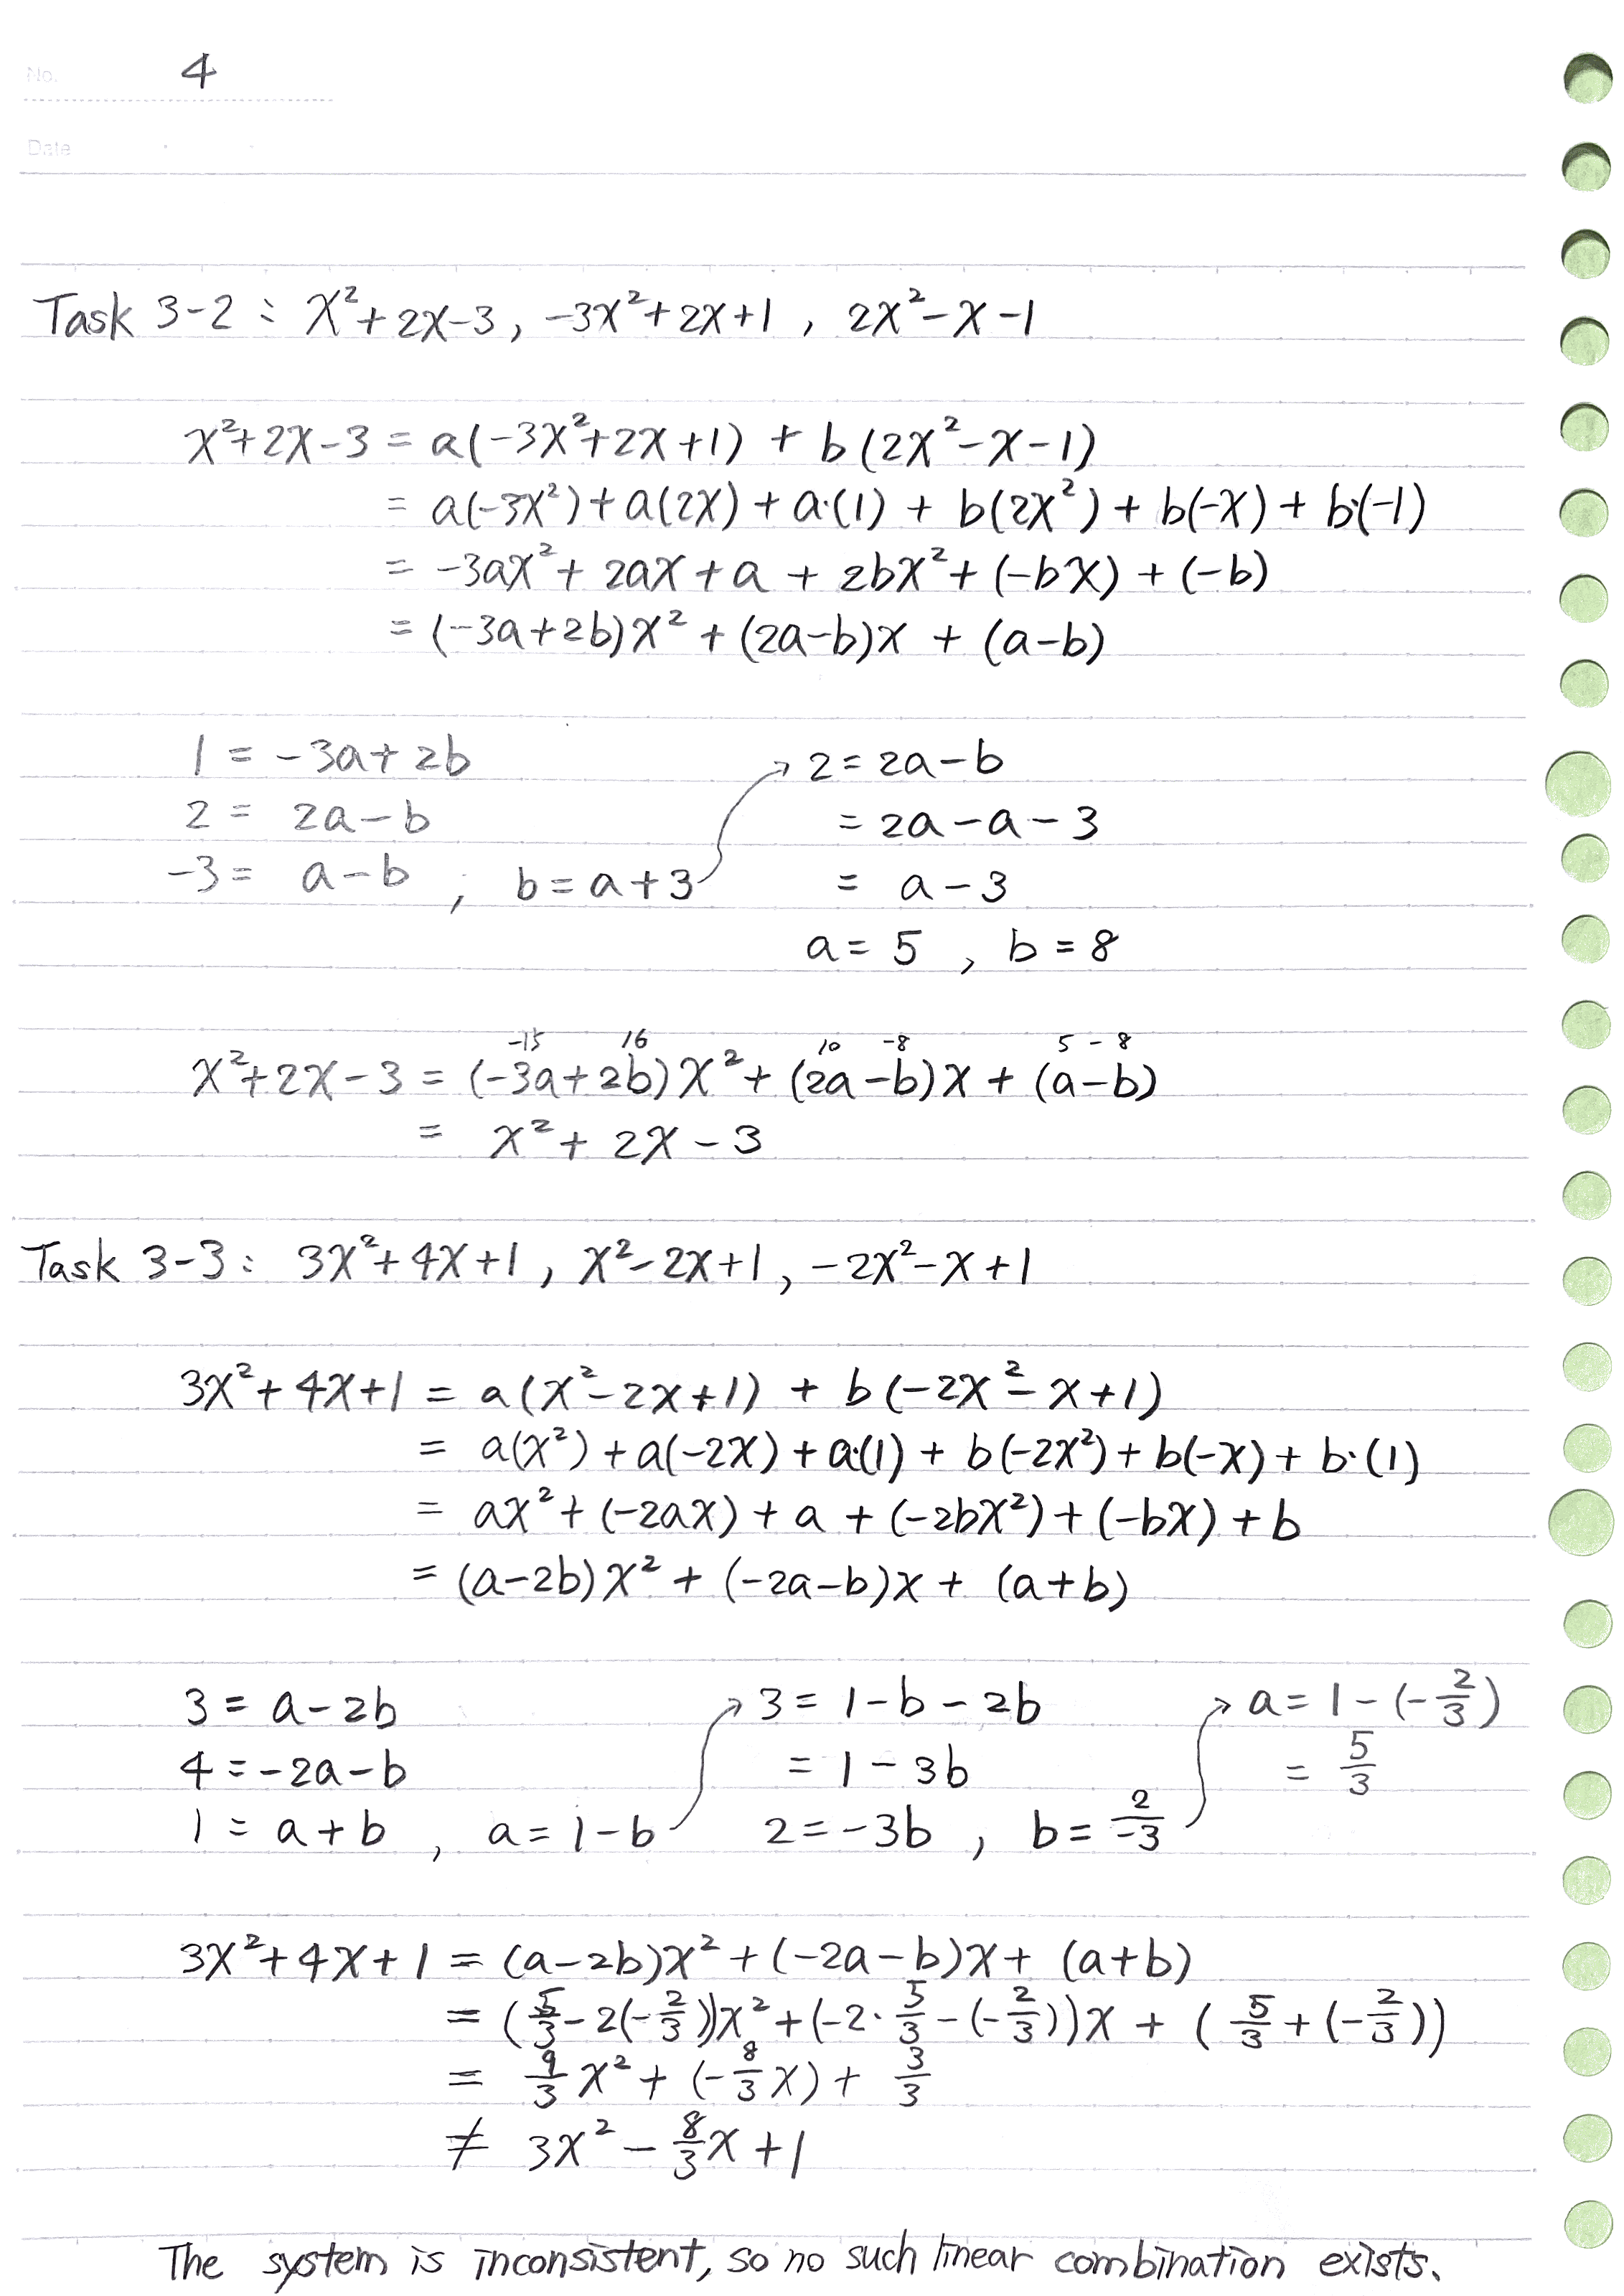 No. 4
Date
Task 3-2 : x²+2x-3, -3x²+2x+1, 2x²-x-1
x²+2x-3 = a(-3x²+2x+1) + b(2x²-x-1)
= a(-3x²)+a(2x)+a·(1)+b(2x²)+b(-x)+b·(-1)
= -3ax²+2ax+a+2bx²+(-bx)+(-b)
= (-3a+2b)x²+(2a-b)x+(a-b)
1 = -3a+2b
2 = 2a-b
-3 = a-b ; b=a+3
2=2a-b
= 2a-a-3
= a-3
a=5, b=8
-15 16 10 -8 5-8
x²+2x-3 = (-3a+2b)x²+(2a-b)x+(a-b)
= x²+2x-3
Task 3-3: 3x²+4x+1, x²-2x+1, -2x²-x+1
3x²+4x+1 = a(x²-2x+1) + b(-2x²-x+1)
= a(x²)+a(-2x)+a·(1)+b(-2x²)+b(-x)+b·(1)
= ax²+(-2ax)+a+(-2bx²)+(-bx)+b
= (a-2b)x²+(-2a-b)x+(a+b)
3 = a-2b
4 = -2a-b
1 = a+b, a=1-b
3 = 1-b-2b
= 1-3b
2=-3b, b=2/-3
a=1-(-2/3)
= 5/3
3x²+4x+1 = (a-2b)x²+(-2a-b)x+(a+b)
= (5/3-2(-2/3))x²+(-2·5/3-(-2/3))x+(5/3+(-2/3))
= 9/3x²+(-8/3x)+3/3
≠ 3x²-8/3x+1
The system is inconsistent, so no such linear combination exists.